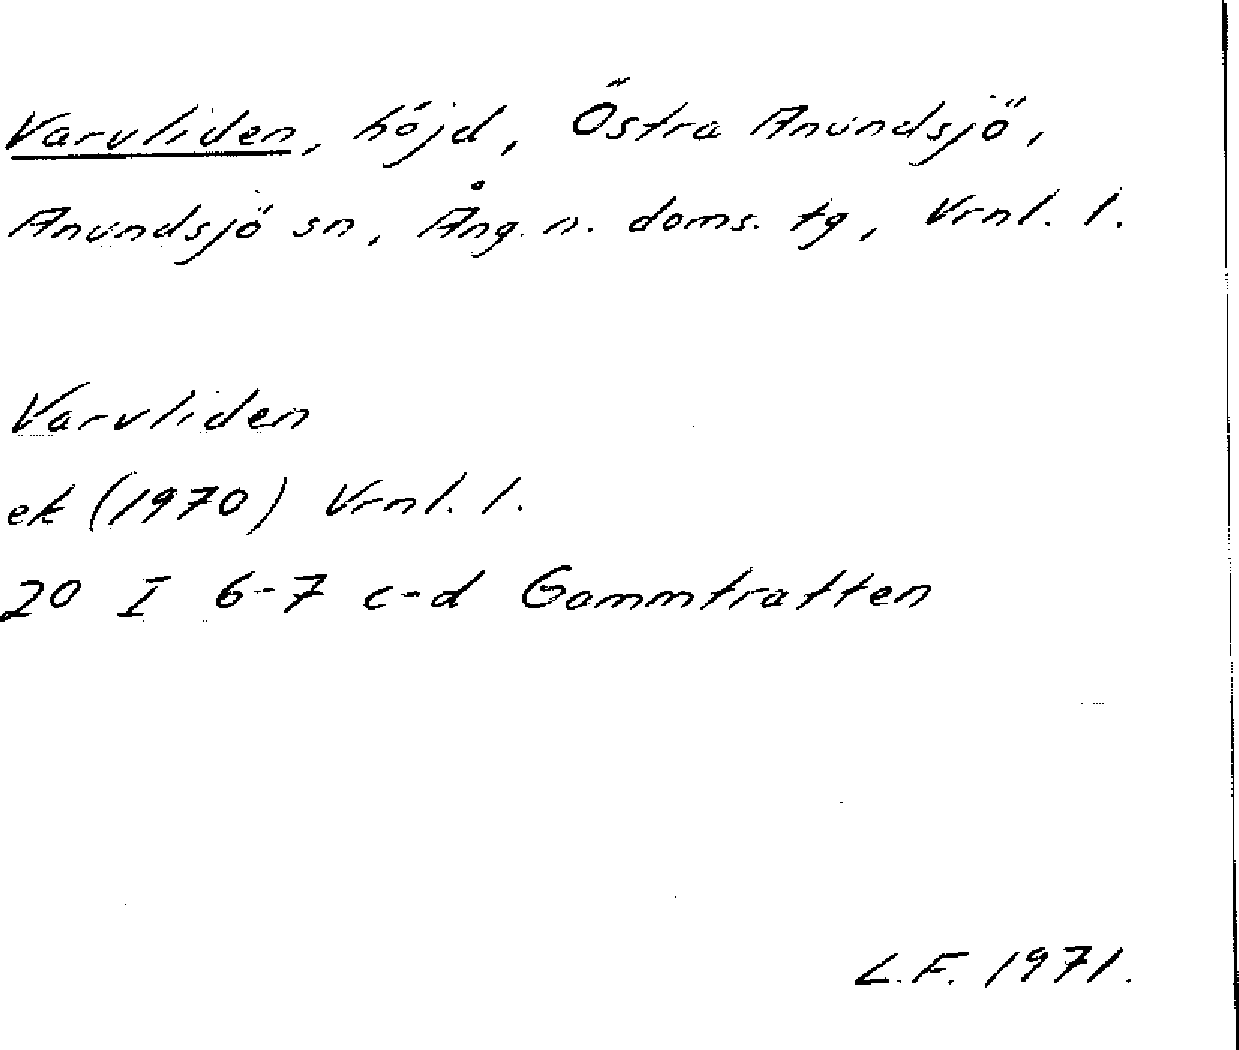 Varvliden, höjd, Östra Anundsjö,
Anundsjö sn, Ång. n. doms. tg, Vrnl. l.
Varvliden
ek (1970) Vrnl. l.
20 I 6-7 c-d Gammtratten
L.F. 1971.